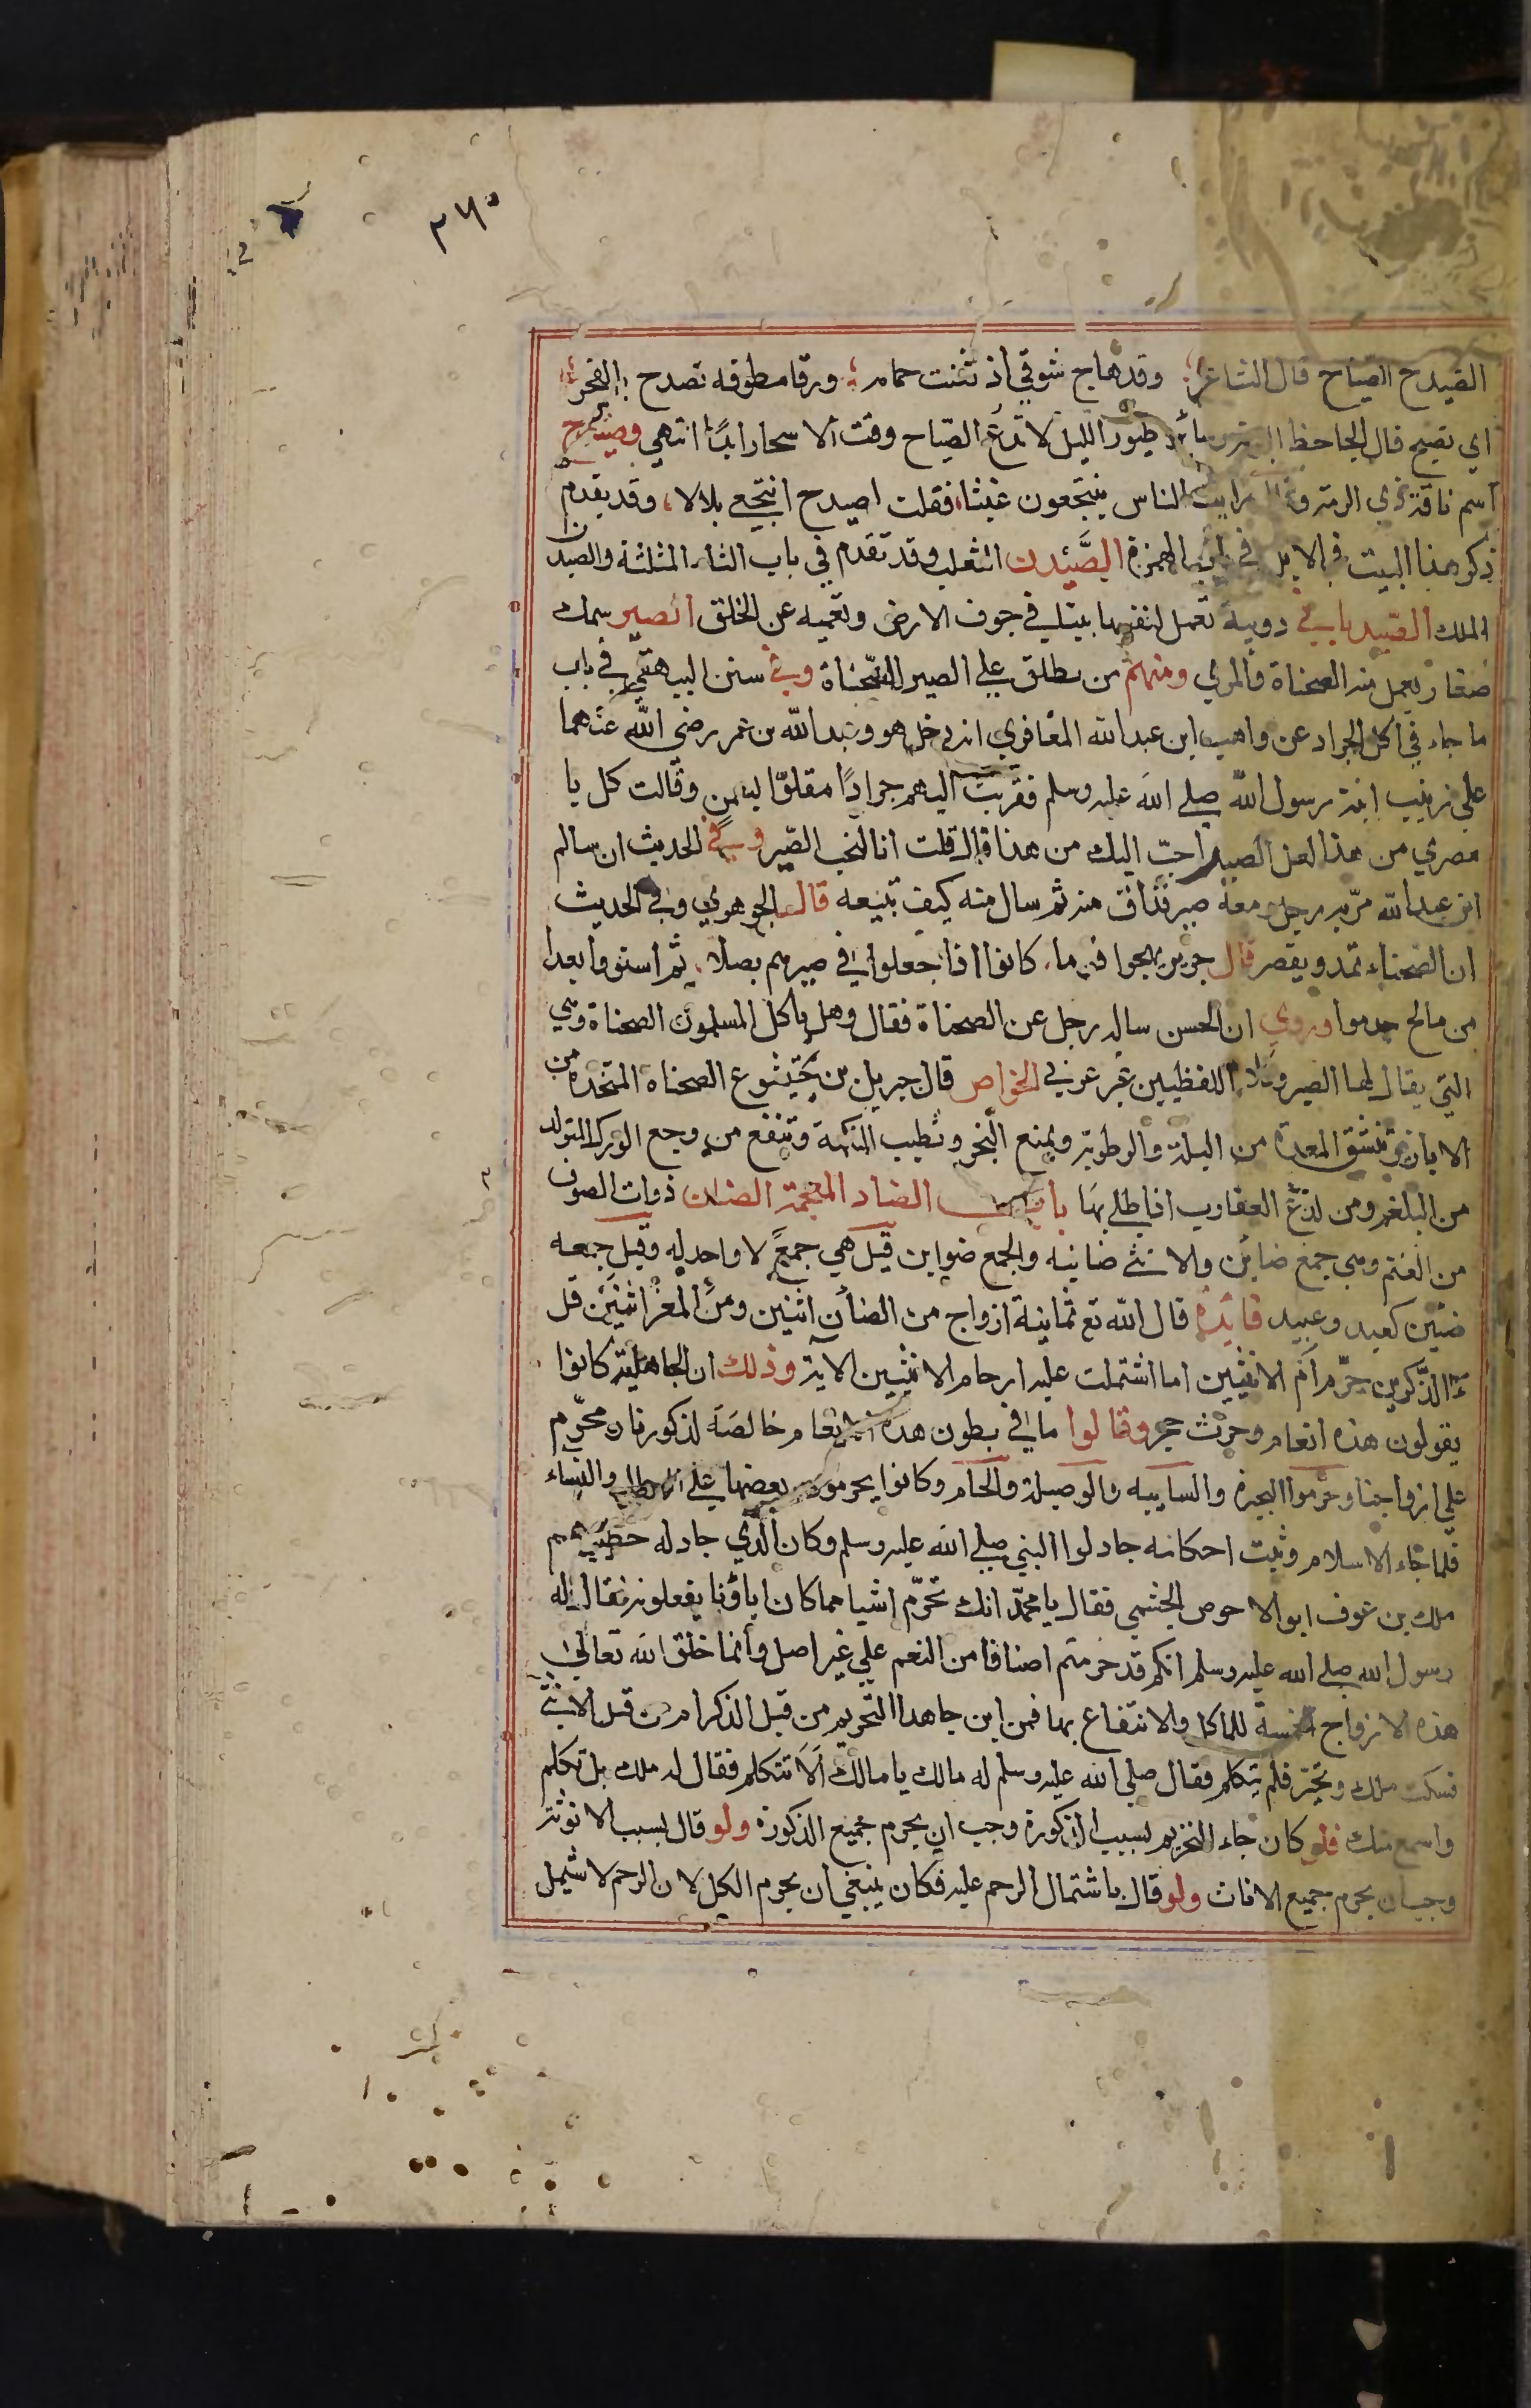 ٣٧٥
الصيدح الصياح قال الشاعر وقد هاج شوقي اذ تثنت حمام ورقا مطوقه تصدح بالفجر
اي تصيح قال الجاحظ طيور الليل لا تدع الصياح وقت الاسحار ابدًا انتهي وصيدح
اسم ناقة ذي الرمة رايت الناس ينتجعون غيثا فقلت اصيدح انتجعي بلالا، وقد يقدم
ذكر هذا البيت في الابل في باب الهمزة الصَّيْدن الثعلب وقد تقدم في باب الثاء المثلثة والصيدن
الملك الصيدناني دويبة تعمل لنفسها بيتا في جوف الارض وتعميه عن الخلق الصير سمك
صغار يعمل منه الصحناة والمري ومنهم من يطلق علي الصير الصحناة وفي سنن البيهقي في باب
ما جاء في اكل الجراد عن واهب ابن عبدالله المعافري انه دخل هو وعبدالله بن عمر رضي الله عنهما
علي زينب ابنة رسول الله صلي الله عليه وسلم فقربت اليهم جرادًا مقلوّا بسمن وقالت كل يا
مصري من هذا لعل الصير احبّ اليك من هذا قال قلت انا لنحب الصير وفي الحديث ان سالم
ابن عبدالله مرّ به رجل ومعه صير فذاق منه ثم سال منه كيف تبيعه قال الجوهري وفي الحديث
ان الصحناء تمد ويقصر قال جرير يهجوا قوما، كانوا اذا جعلوا في صيرهم بصلا، ثم استووا بعدا
من مالح جدموا وروي ان الحسن ساله رجل عن الصحناة فقال وهل ياكل المسلمون الصحناة وهي
التي يقال لها الصير وكلا اللفظيين غير عربي الخواص قال جبريل بن بختيشوع الصحناه المتخذه من
الابازير تنشق المعدة من البلة والرطوبة ويمنع البخر وتطيب النكهة وتنفع من وجع الورك المتولد
من البلغم ومن لدغ العقارب اذا طلي بها باب الضاد المعجمة الضان ذوات الصوف
من الغنم وهي جمع ضاين والانثي ضانيه والجمع ضواين قيل هي جمعٌ لا واحد له وقيل جمعه
ضئين كعبد وعبيد فائدة قال الله تع ثمانية ازواج من الضأن اثنين ومن المعز اثنين قل
ءالذَّكرين حرّم ام الانثيين اما اشتملت عليه ارحام الانثيين الاية وذلك ان الجاهلية كانوا
يقولون هذه انعام وحرث حجر وقالوا ما في بطون هذه الانعام خالصَة لذكورنا ومحرّم
علي ازواجنا وحرّموا البحيرة والسايبه والوصيلة والحام وكانوا يحرمون بعضها علي والنساء
فلما جاء الاسلام وثبت احكامه جادلوا النبي صلي الله عليه وسلم وكان الذي جادله خطيبهم
ملك بن عوف ابو الاحوص الجشمي فقال يا محمّد انك تحرّم اشيا مما كان اباؤنا يفعلونه فقال له
رسول الله صلي الله عليه وسلم انكم قد حرمتم اصنافا من النعم علي غير اصل وانما خلق الله تعالي
هذه الازواج للاكل والانتفاع بها فمن اين جاهذا التحريم من قبل الذكر ام من قبل الانثي
فسكت ملك وتحيّر فلم يتكلم فقال صلي الله عليه وسلم له مالك يا مالك اَلَا تتكلم فقال له ملك بل تكلم
واسمع منك فلو كان جاء التحريم بسبب الذكورة وجب ان يحرم جميع الذكورة ولو قال بسبب الانوثة
وجب ان يحرم جميع الاناث ولو قال باشتمال الرحم عليه فكان ينبغي ان يحرم الكل لان الرحم لا شيمل